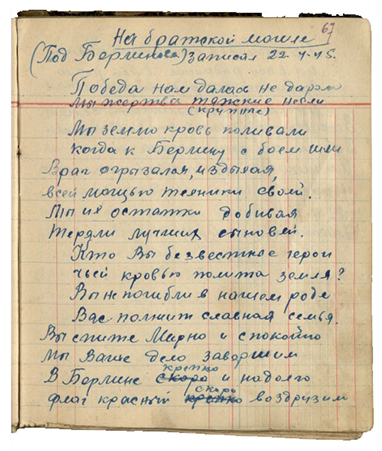 67
На братской могиле
(Под Берлином) записал 22-4-45.
Победа нам далась не даром
Мы жертвы тяжские несли
(крупные)
Мы землю кровь поливали
когда к Берлину с боем шли
Враг огрызался, издыхая,
всей мощью техники своей.
Мы их остатки добивая
теряли лучших сыновей.
Кто Вы безвестные герои
чьей кровью полита земля?
Вы не погибли в нашем роде
Вас помнит славная семья.
Вы спите Мирно и спокойно
Мы Ваше дело завершим
крепко
В Берлине скоро и надолго
скоро
флаг красный крепко воздрузим